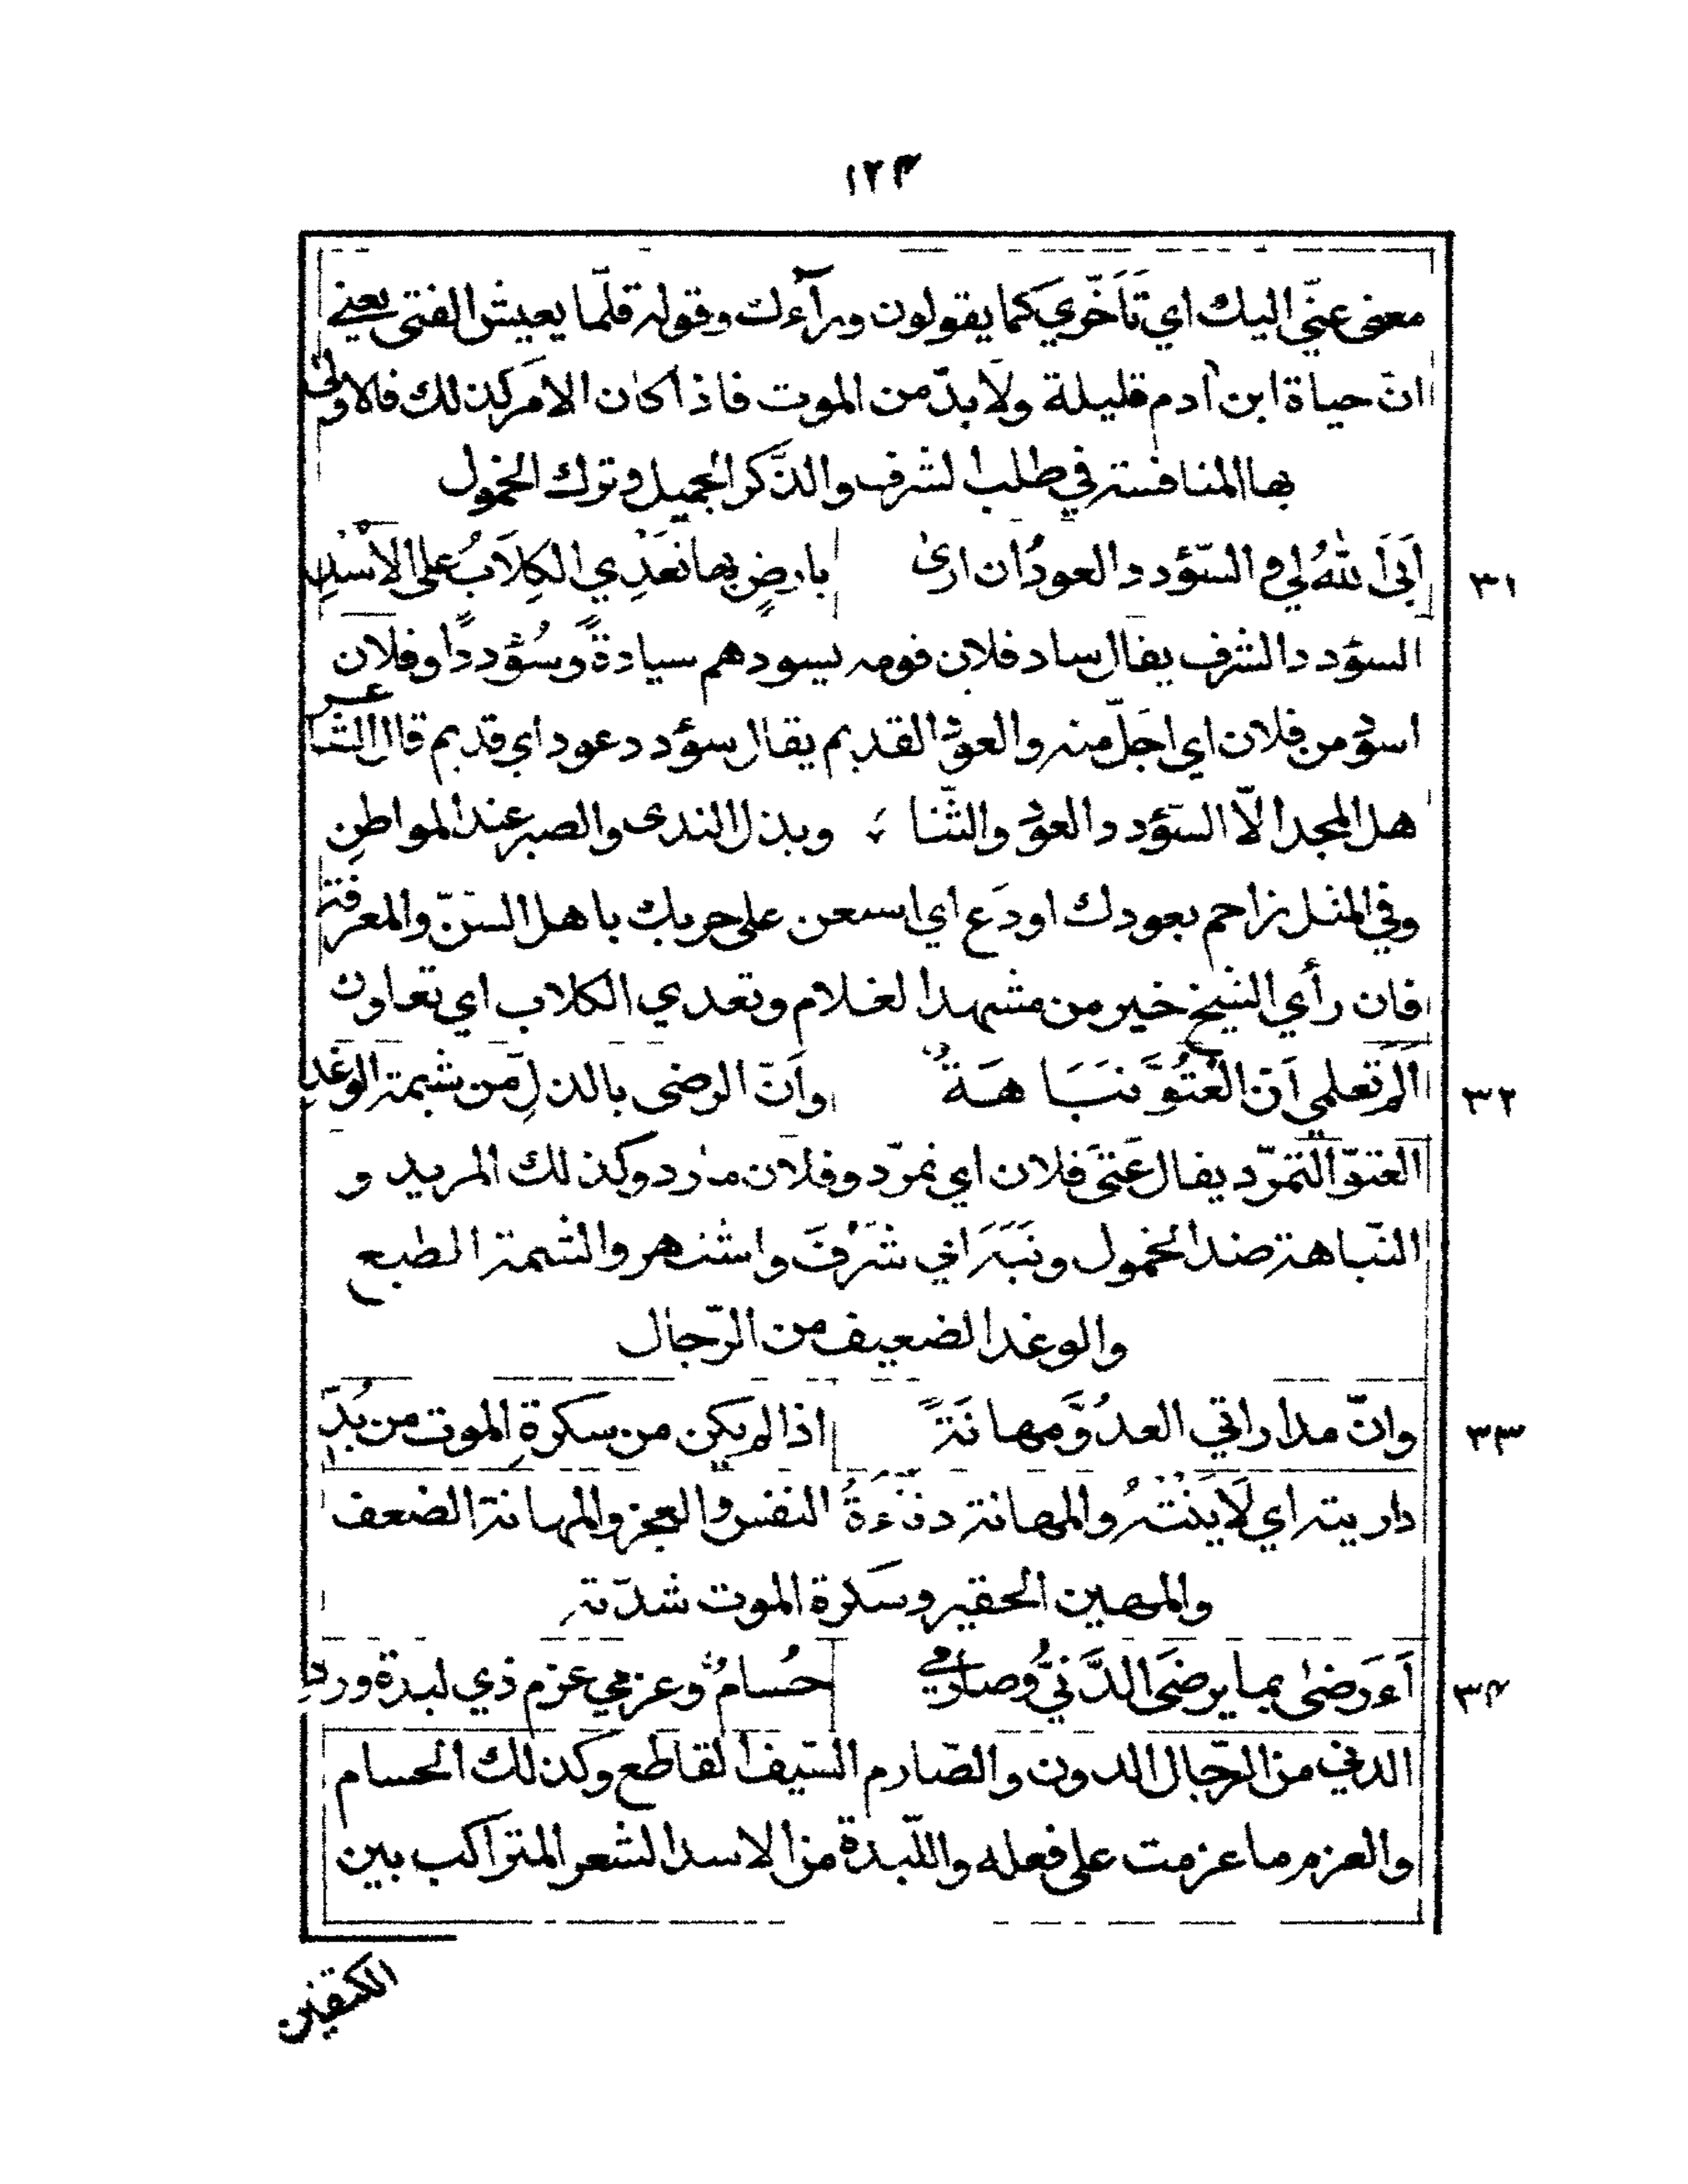 ١٢٣
معنى عنّي اليك اي تَأخّري كما يقولون ورآءك وقوله قلّما يعيش الفتى يعني
انّ حياة ابن آدم قليلة ولَا بدّ من الموت فاذا كان الامر كذلك فالاولى
بها المنافسة في طلب الشرف والذّكر الجميل وترك الخمول
٣١ اَبَى اَللهُ لي والسّؤدد العودُ ان ارى بارضٍ بها تَعَدِي الكِلَابُ على الاُسْدِ
السؤدد الشرف يقال ساد فلان قومه يسودهم سيادةً وسُؤددًا وفلان
اسود من فلان اي اجَلّ منه والعود القديم يقال سؤدد عود اي قديم قال الشاعر
هل المجد الّا السّؤدد العود والثّنا وبذل الندى والصبر عند المواطنِ
وفي المثل زاحم بعودك او دَع اي استعن على حربك باهل السنّ والمعرفة
فان رأي الشيخ خير من مشهد الغلام وتعدي الكلاب اي تعاون
٣٢ اَلَم تعلمي اَنّ العُتُوَّ نَبَاهَةٌ واَنّ الرضى بالذلِ من شيمة الوغد
العتوّ التمرّد يقال عَتَى فلان اي تمرّد وفلان مارد وكذلك المريد و
النّباهة ضد الخمول ونَبَهَ اي شَرُفَ واشتهر والشيمة الطبع
والوغد الضعيف من الرّجال
٣٣ وانّ مداراتي العدُوَّ مهانَةً اذا لم يكن من سكرةِ الموت من بُدِّ
داريته اي لَايَنْتُهُ والمهانة دنَآءَةُ النفس والعجز والمهانة الضعف
والمهين الحقير وسَكرة الموت شدّته
٣٤ اَءَرضى بما يرضَى الدَّنيُّ وصارمي حُسامٌ وعزمي عزم ذي لبدة ورد
الدني من الرّجال الدون والصّارم السّيف القاطع وكذلك الحسام
والعزم ما عزمت على فعله واللّبدة من الاسد الشعر المتراكب بين
الكتفين